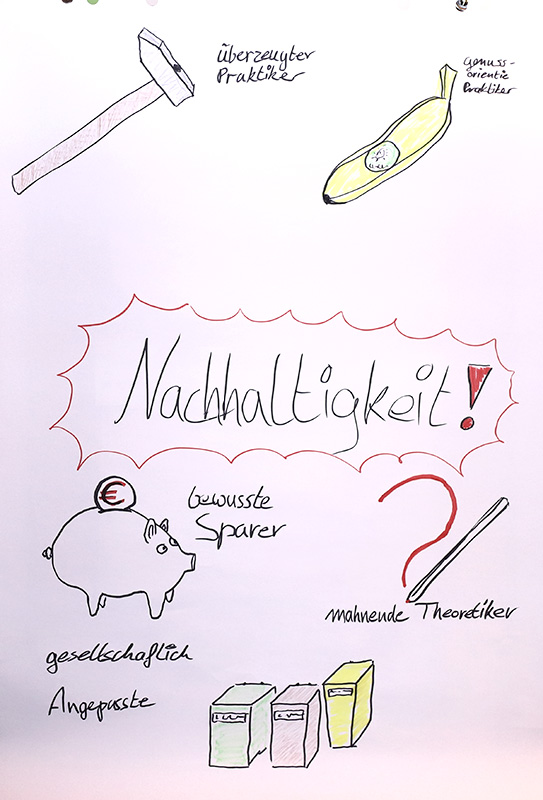 überzeugter
Praktiker
genuss-
orientie
Praktiker
Nachhaltigkeit!
€
bewusste
Sparer
?
mahnende Theoretiker
gesellschaftlich
Angepasste